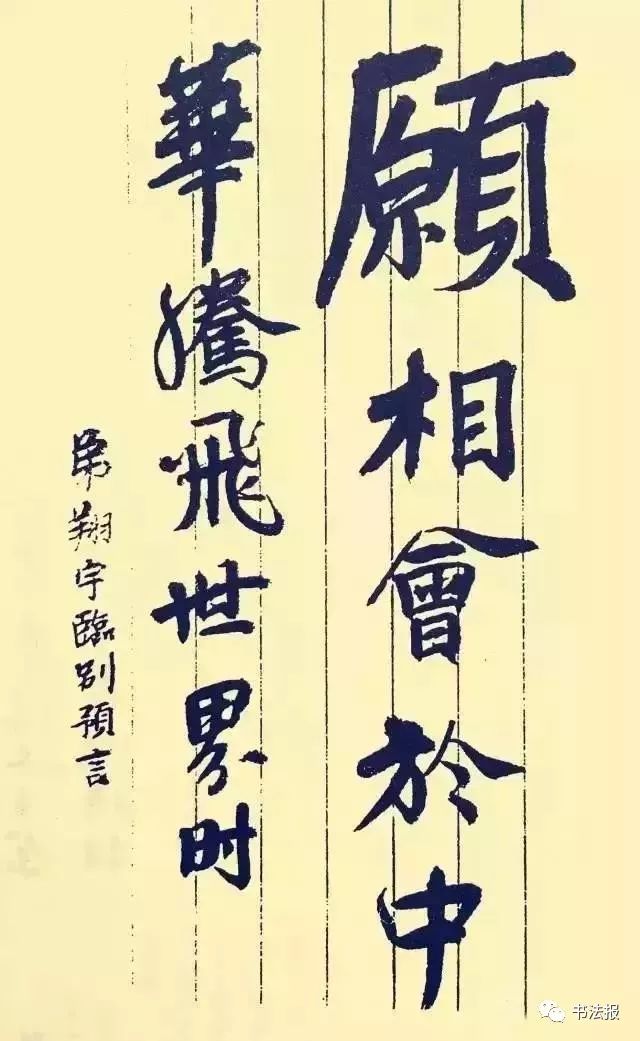 願相會於中
華騰飛世界时
弟翔宇臨别預言
书法报